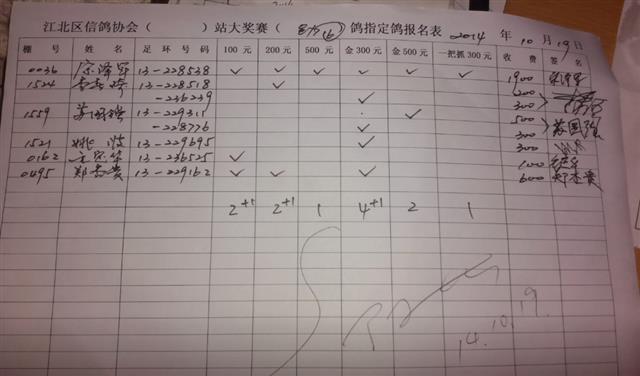 江北区信鸽协会（ ）站大奖赛（ ）鸽指定鸽报名表 2014 年 10 月 19 日
棚 号 姓 名 足 环 号 码 100 元 200 元 500 元 金 300 元 金 500 元 一把抓 300 元 收 费 签 名
0036 宗泽军 13-228538 ✓ ✓ ✓ ✓ ✓ ✓ 1900 宗泽军
1524 13-228518 ✓ 200
-236239 ✓ 300
1559 苏国强 13-229311 ✓ 500 苏国强
-228776 ✓ 300
1521 姚 13-229695 ✓ 300
0162 13-236525 ✓ 100
0495 郑志贵 13-229162 ✓ ✓ ✓ 600 郑志贵
2+1 2+1 1 4+1 2 1
14.10.19.